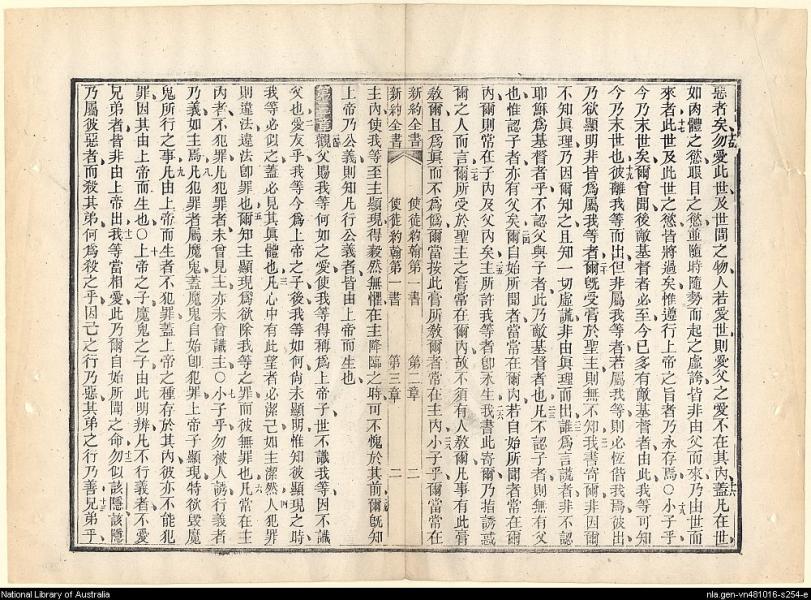 惡者矣勿愛此世及世間之物人若愛世則愛父之愛不在其內蓋凡在世
如肉體之慾眼目之慾並隨時隨勢而起之虛誇皆非由父而來乃由世而
來者此世及此世之慾皆將過矣惟遵行上帝之旨者乃永存焉○小子乎
今乃末世矣爾曾聞後敵基督者必至今已多有敵基督者由此我等可知
今乃末世也彼離我等而出但非屬我等者若屬我等則必恆偕我焉彼出
乃欲顯明非皆爲屬我等者爾旣受膏於聖主則無不知我書寄爾非因爾
不知眞理乃因爾知之且知一切虛謊非由眞理而出誰爲言謊者非不認
耶穌爲基督者乎不認父與子者此乃敵基督者也凡不認子者則無有父
也惟認子者亦有父矣爾自始所聞者當常在爾內若自始所聞者常在爾
內爾則常在子內及父內矣主所許我等者卽永生我書此寄爾乃指誘惑
爾之人而言爾所受於聖主之膏常在爾內故不須有人敎爾凡事有此膏
敎爾且爲眞而不爲僞爾當按此膏所敎爾者常在主內小子乎爾當常在
新約全書 使徒約翰第一書 第二章 二
新約全書 使徒約翰第一書 第三章 二
主內使我等至主顯現得毅然無懼在主降臨之時可不愧於其前爾旣知
上帝乃公義則知凡行公義者皆由上帝而生也
第三章觀父賜我等何如之愛使我等得稱爲上帝子世不識我等因不識
父也愛友乎我等今爲上帝之子後我等如何尙未顯明惟知彼顯現之時
我等必似之蓋必見其眞體也凡心中有此望者必潔己如主潔然人犯罪
則違法違法卽罪也爾知主顯現爲欲除我等之罪而彼無罪也凡常在主
內者不犯罪凡犯罪者未曾見主亦未曾識主○小子乎勿被人誘行義者
乃義如主焉凡犯罪者屬魔鬼蓋魔鬼自始卽犯罪上帝子顯現特欲毀魔
鬼所行之事凡由上帝而生者不犯罪蓋上帝之種存於其內彼亦不能犯
罪因其由上帝而生也○上帝之子魔鬼之子由此明辨凡不行義者不愛
兄弟者皆非由上帝出我等當相愛此乃爾自始所聞之命勿似該隱該隱
乃屬彼惡者而殺其弟何爲殺之乎因己之行乃惡其弟之行乃善兄弟乎
National Library of Australia
nla.gen-vn481016-s254-e